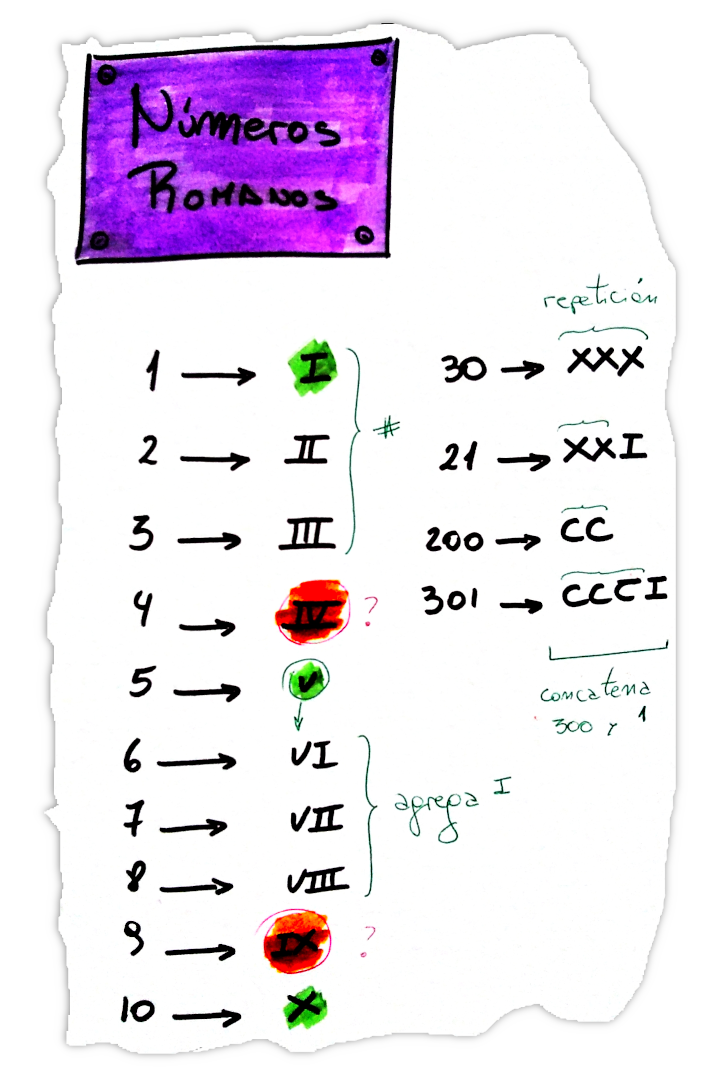 Números
Romanos
1 → I
2 → II
3 → III
#
4 → IV ?
5 → V
6 → VI
7 → VII
8 → VIII
agrega I
9 → IX ?
10 → X
repetición
30 → XXX
21 → XXI
200 → CC
301 → CCCI
concatena
300 y 1